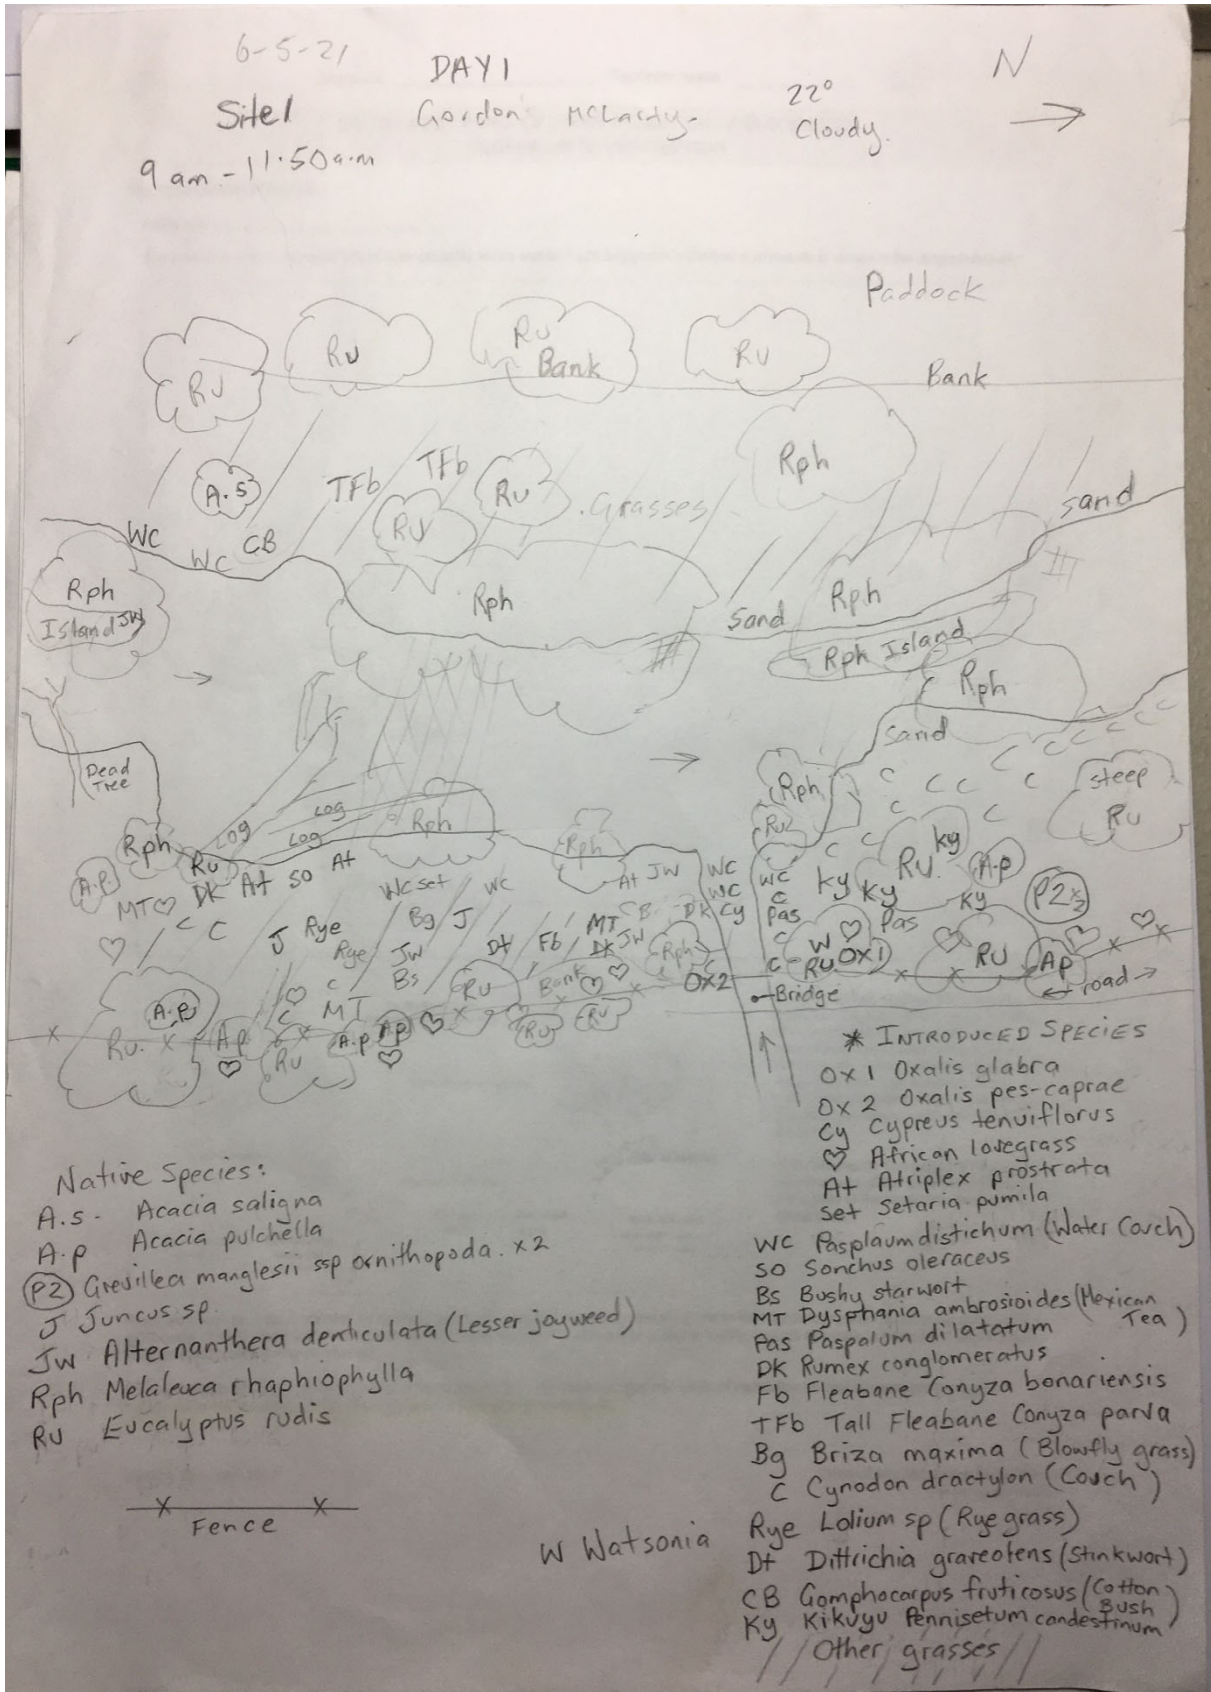 6-5-21
DAY 1
N
Site 1
Gordon McLarty.
22°
Cloudy.
9 am - 11.50 a.m
Paddock
Ru
Ru
Ru
Ru
Bank
Bank
Rph
A.S
TFb
TFb
Ru
Ru
Grasses
sand
WC
WC
CB
Rph
Island JW
Rph
Sand
Rph
Rph Island
Rph
Sand
C C C C C
Dead
Tree
Log
Log
Log
Rph
Rph
Rph
Ru
C C C C
C
steep
Ru
Rph
Ru
A.P
MT ♡
DK
At
SO
At
WC
set
WC
At
JW
WC
WC
Cy
WC
C
Pas
Ky
Ky
Ru
Ky
A.p
Ky
P2 x2
C
C
J
Rye
Rye
Bg
J
JW
Bs
Dt
Fb
MT
CB
DK
DK
JW
Rph
C
MT
Ru
Bank
Ox2
C
W
Ru
Ox1
Pas
Ru
Ap
← road →
Bridge
A.P
Ru.
Ap
Ru
A.p
Ap
Ru
Ru
* INTRODUCED SPECIES
OX 1 Oxalis glabra
OX 2 Oxalis pes-caprae
Cy Cypreus tenuiflorus
♡ African lovegrass
At Atriplex prostrata
Set Setaria pumila
WC Pasplaum distichum (Water Couch)
SO Sonchus oleraceus
Bs Bushy starwort
MT Dysphania ambrosioides (Mexican Tea)
Pas Paspalum dilatatum
DK Rumex conglomeratus
Fb Fleabane Conyza bonariensis
TFb Tall Fleabane Conyza parva
Bg Briza maxima (Blowfly grass)
C Cynodon dractylon (Couch)
Rye Lolium sp (Rye grass)
Dt Dittrichia graveolens (Stinkwort)
CB Gomphocarpus fruticosus (Cotton Bush)
Ky Kikuyu Pennisetum candestinum
Other grasses
Native Species:
A.s. Acacia saligna
A.p Acacia pulchella
P2 Grevillea manglesii ssp ornithopoda. x 2
J Juncus sp.
Jw Alternanthera denticulata (Lesser joyweed)
Rph Melaleuca rhaphiophylla
Ru Eucalyptus rudis
x x
Fence
W Watsonia